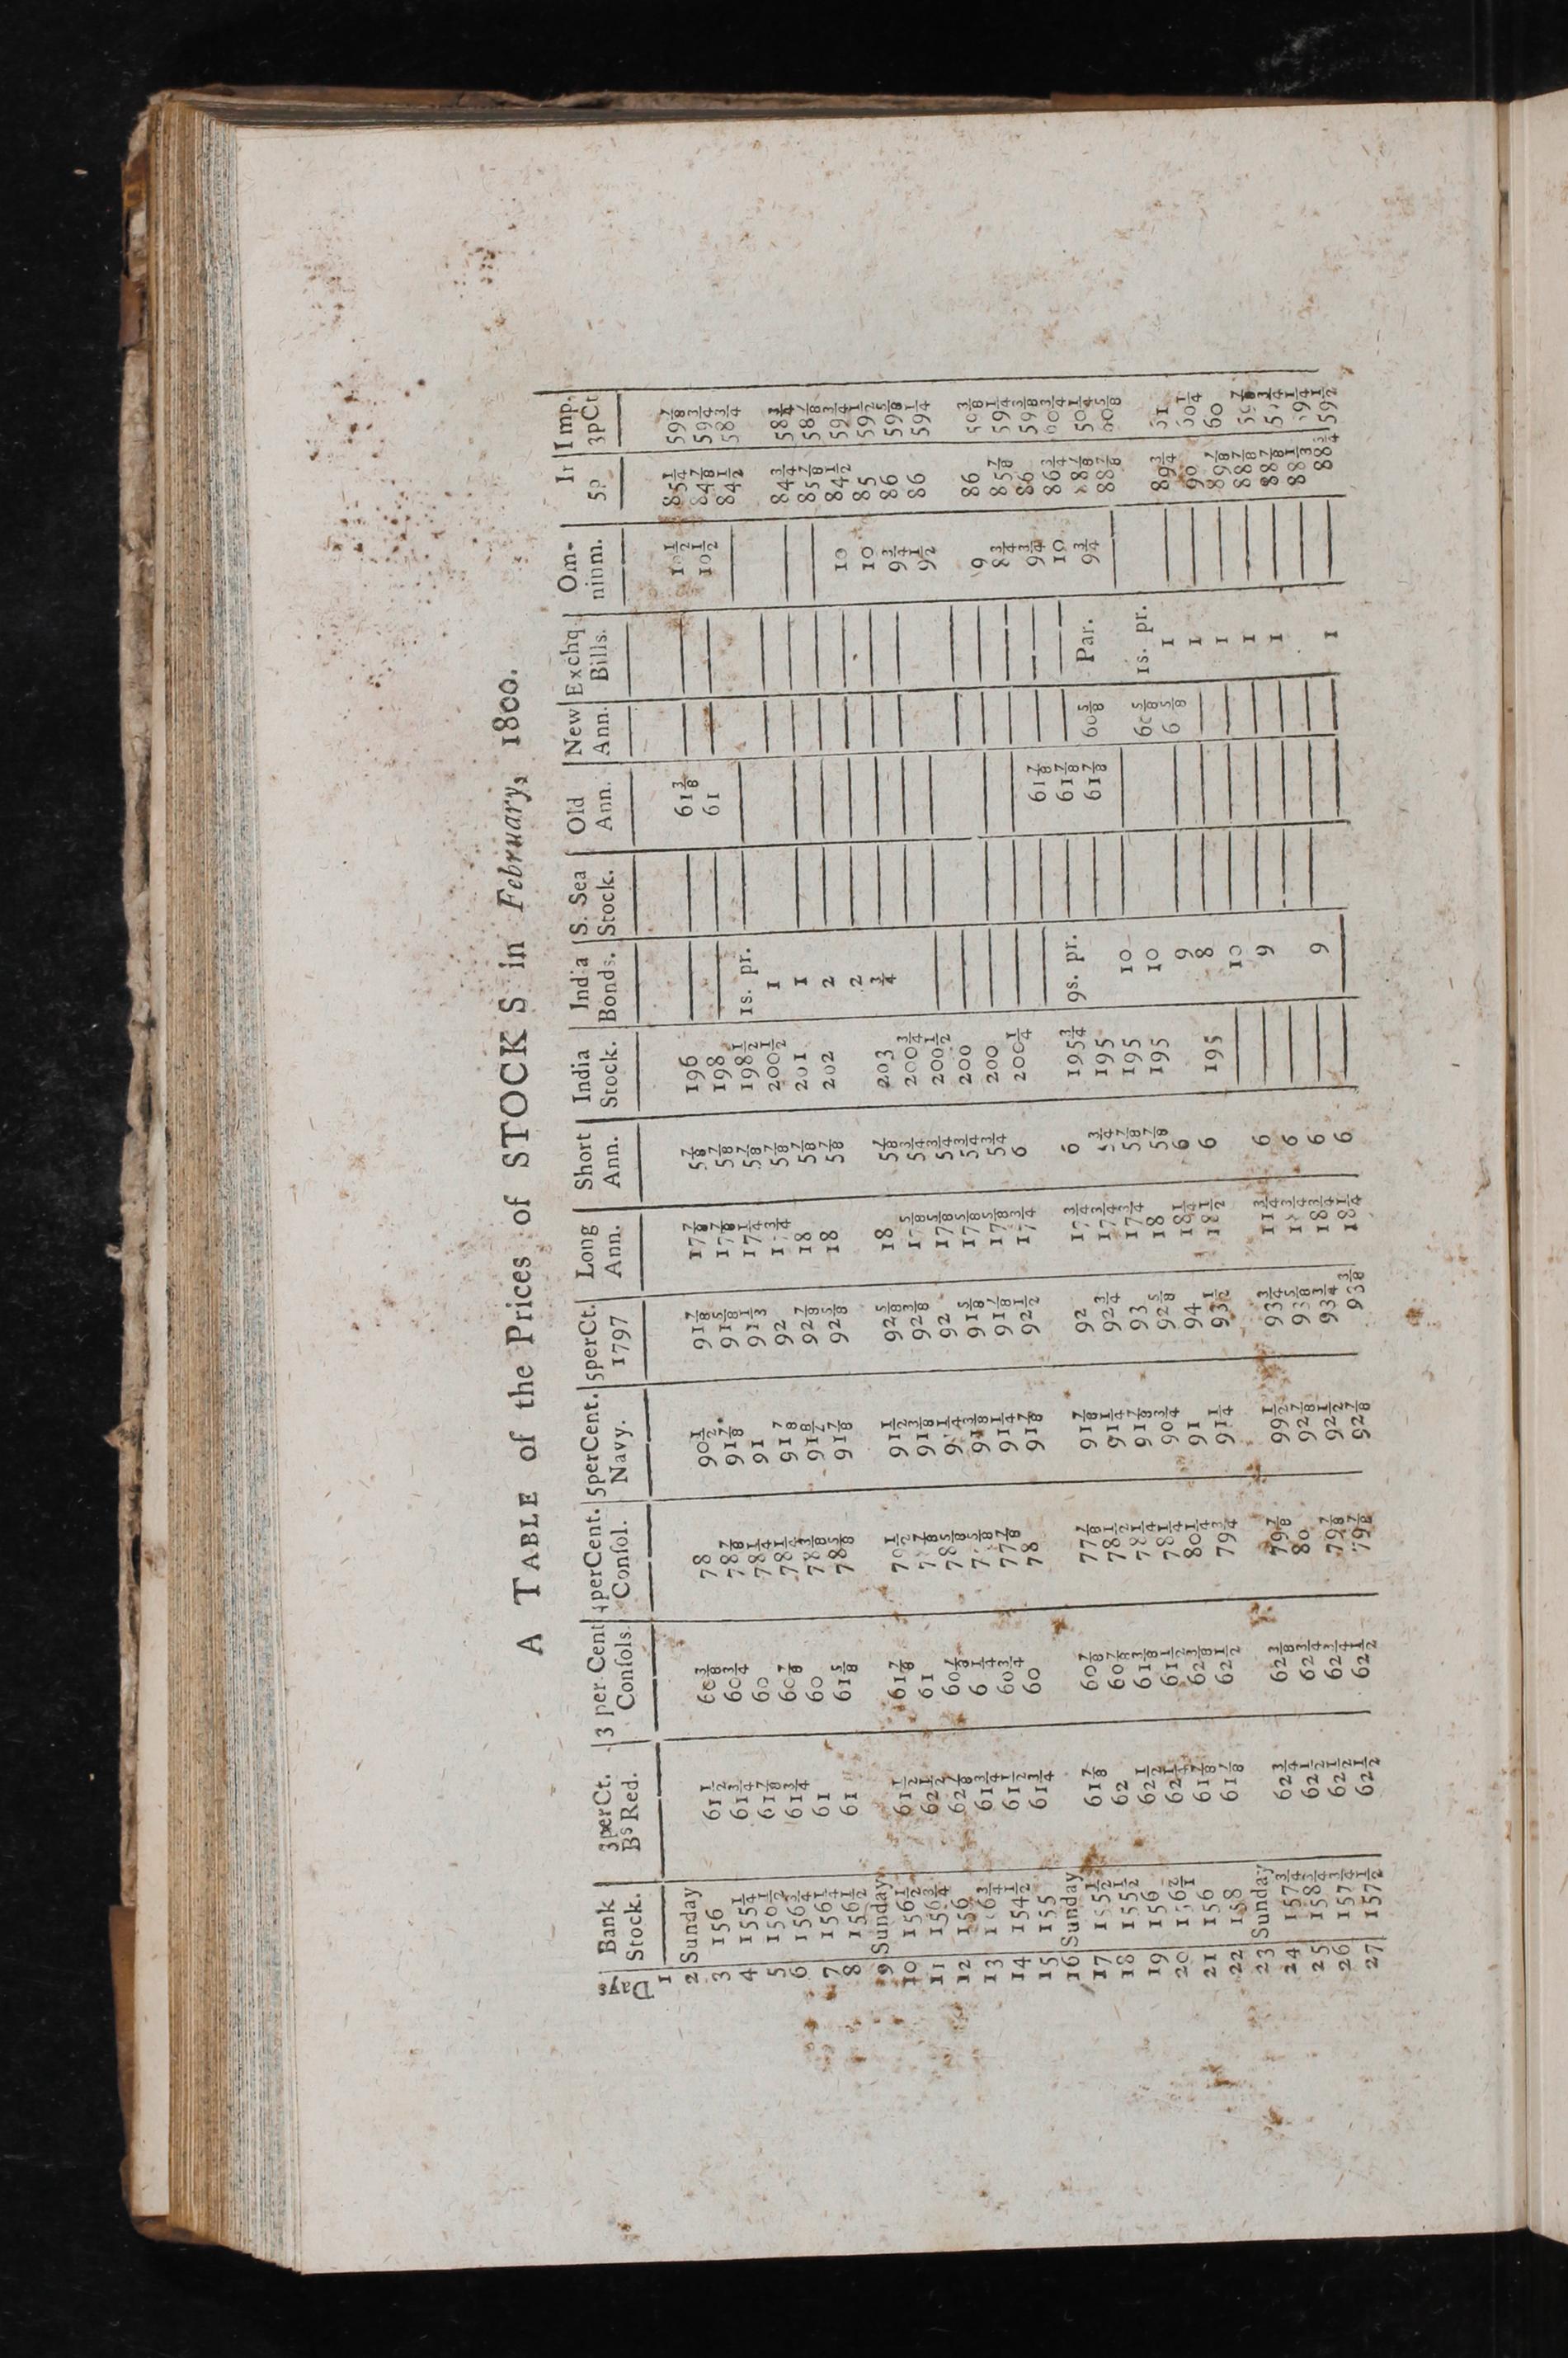 A TABLE of the Prices of STOCKS in February, 1800.
Days | Bank Stock. | 3perCt. Bs Red. | 3 per Cent Conſols. | 4perCent. Conſol. | 5perCent. Navy. | 5perCt. 1797 | Long Ann. | Short Ann. | India Stock. | India Bonds. | S. Sea Stock. | Old Ann. | New Ann. | Exchq Bills. | Omnium. | Ir 5p | Imp. 3pCt
1
2 Sunday
3 156 61½ 60⅜ 78 90½ 91⅞ 17⅞ 5⅞ 196 — — 61⅜ — — 10½ 85¼ 59⅞
4 155¼ 61¾ 60¾ 78⅞ 91⅞ 91⅝ 17⅞ 5⅞ 198 — — 61 — — 10½ 84⅞ 59¾
5 156½ 61⅞ 60 78¼ 91 91⅓ 17¼ 5⅞ 198½ 1s. pr. — — — 84½ 58¾
6 156¾ 61¾ 60⅞ 78¼ 91⅞ 92 1 ¾ 5⅞ 200½ 1 — — 84¾ 58¾
7 156¼ 61 60 78⅜ 91 92⅞ 18 5⅞ 201 1 — — — — — 85⅞ 58⅞
8 156½ 61 61⅝ 78⅝ 91⅞ 92⅝ 18 5⅞ 202 2 — — — — — 84½ 59¾
9 Sunday 2 — — — — 10 85 59½
10 156½ 61½ 61⅞ 79½ 91½ 92⅝ 18 5⅞ 203 ¾ — — — — 10 86 59⅝
11 156¾ 62½ 61 7 ⅞ 91⅜ 92⅜ 17⅝ 5¾ 200¾ — — — — 9¾ 86 59¼
12 156 62⅞ 60⅞ 78⅝ 9 ¼ 92 17⅝ 5¾ 200½ — — — 9½
13 1 6¾ 61¾ 6 ¼ 7 ⅝ 91⅜ 91⅝ 17⅝ 5¾ 200 — — — 86 59⅜
14 154½ 61½ 60¾ 77⅞ 91¼ 91⅞ 17⅝ 5¾ 200 — — — — — 9 85⅞ 59¼
15 155 61¾ 60 78 91⅞ 92½ 17¾ 6 200¼ — — — — 8¾ 86 59⅜
16 Sunday — — 61⅞ — — 9¾ 86¾ 60¾
17 155½ 61⅞ 60⅞ 77⅞ 91⅞ 92 17¾ 6 195¾ 9s. pr. — 61⅞ — — 10 88⅞ 50¼
18 155½ 62 60⅞ 78½ 91¼ 92¾ 17¾ 5¾ 195 — 61⅞ 60⅝ Par. 9¾ 88⅞ 60⅝
19 156 62½ 61⅜ 78¼ 91⅞ 93 17¾ 5⅞ 195 10 — — —
20 156 62 61½ 78¼ 90¾ 92⅝ 18 5⅞ 195 10 60⅝ 1s. pr. 89¾ 61
21 156 61⅞ 62⅜ 80¼ 91 94 18¼ 6 9 — — 6 ⅝ 1 — 90 60¼
22 158 61⅞ 62½ 79¾ 91¼ 93½ 18½ 6 195 8 — — — 1 — 89⅞ 60
23 Sunday — 10 — — — 1 — 88⅞ 59⅞
24 157¾ 62¾ 62⅜ 79⅞ 99½ 93¾ 11¾ 6 — 9 — — — 1 — 88⅞ 5 ¾
25 158¾ 62½ 62¾ 80 92⅞ 93⅝ 1 ¾ 6 — — — — 1 — 88⅓ 59¼
26 157¾ 62½ 62¾ 79⅞ 92½ 93¾ 18¾ 6 — 9 — — — 88¾ 59½
27 157½ 62½ 62½ 79⅞ 92⅞ 93⅜ 18¼ 6 — — 1 —